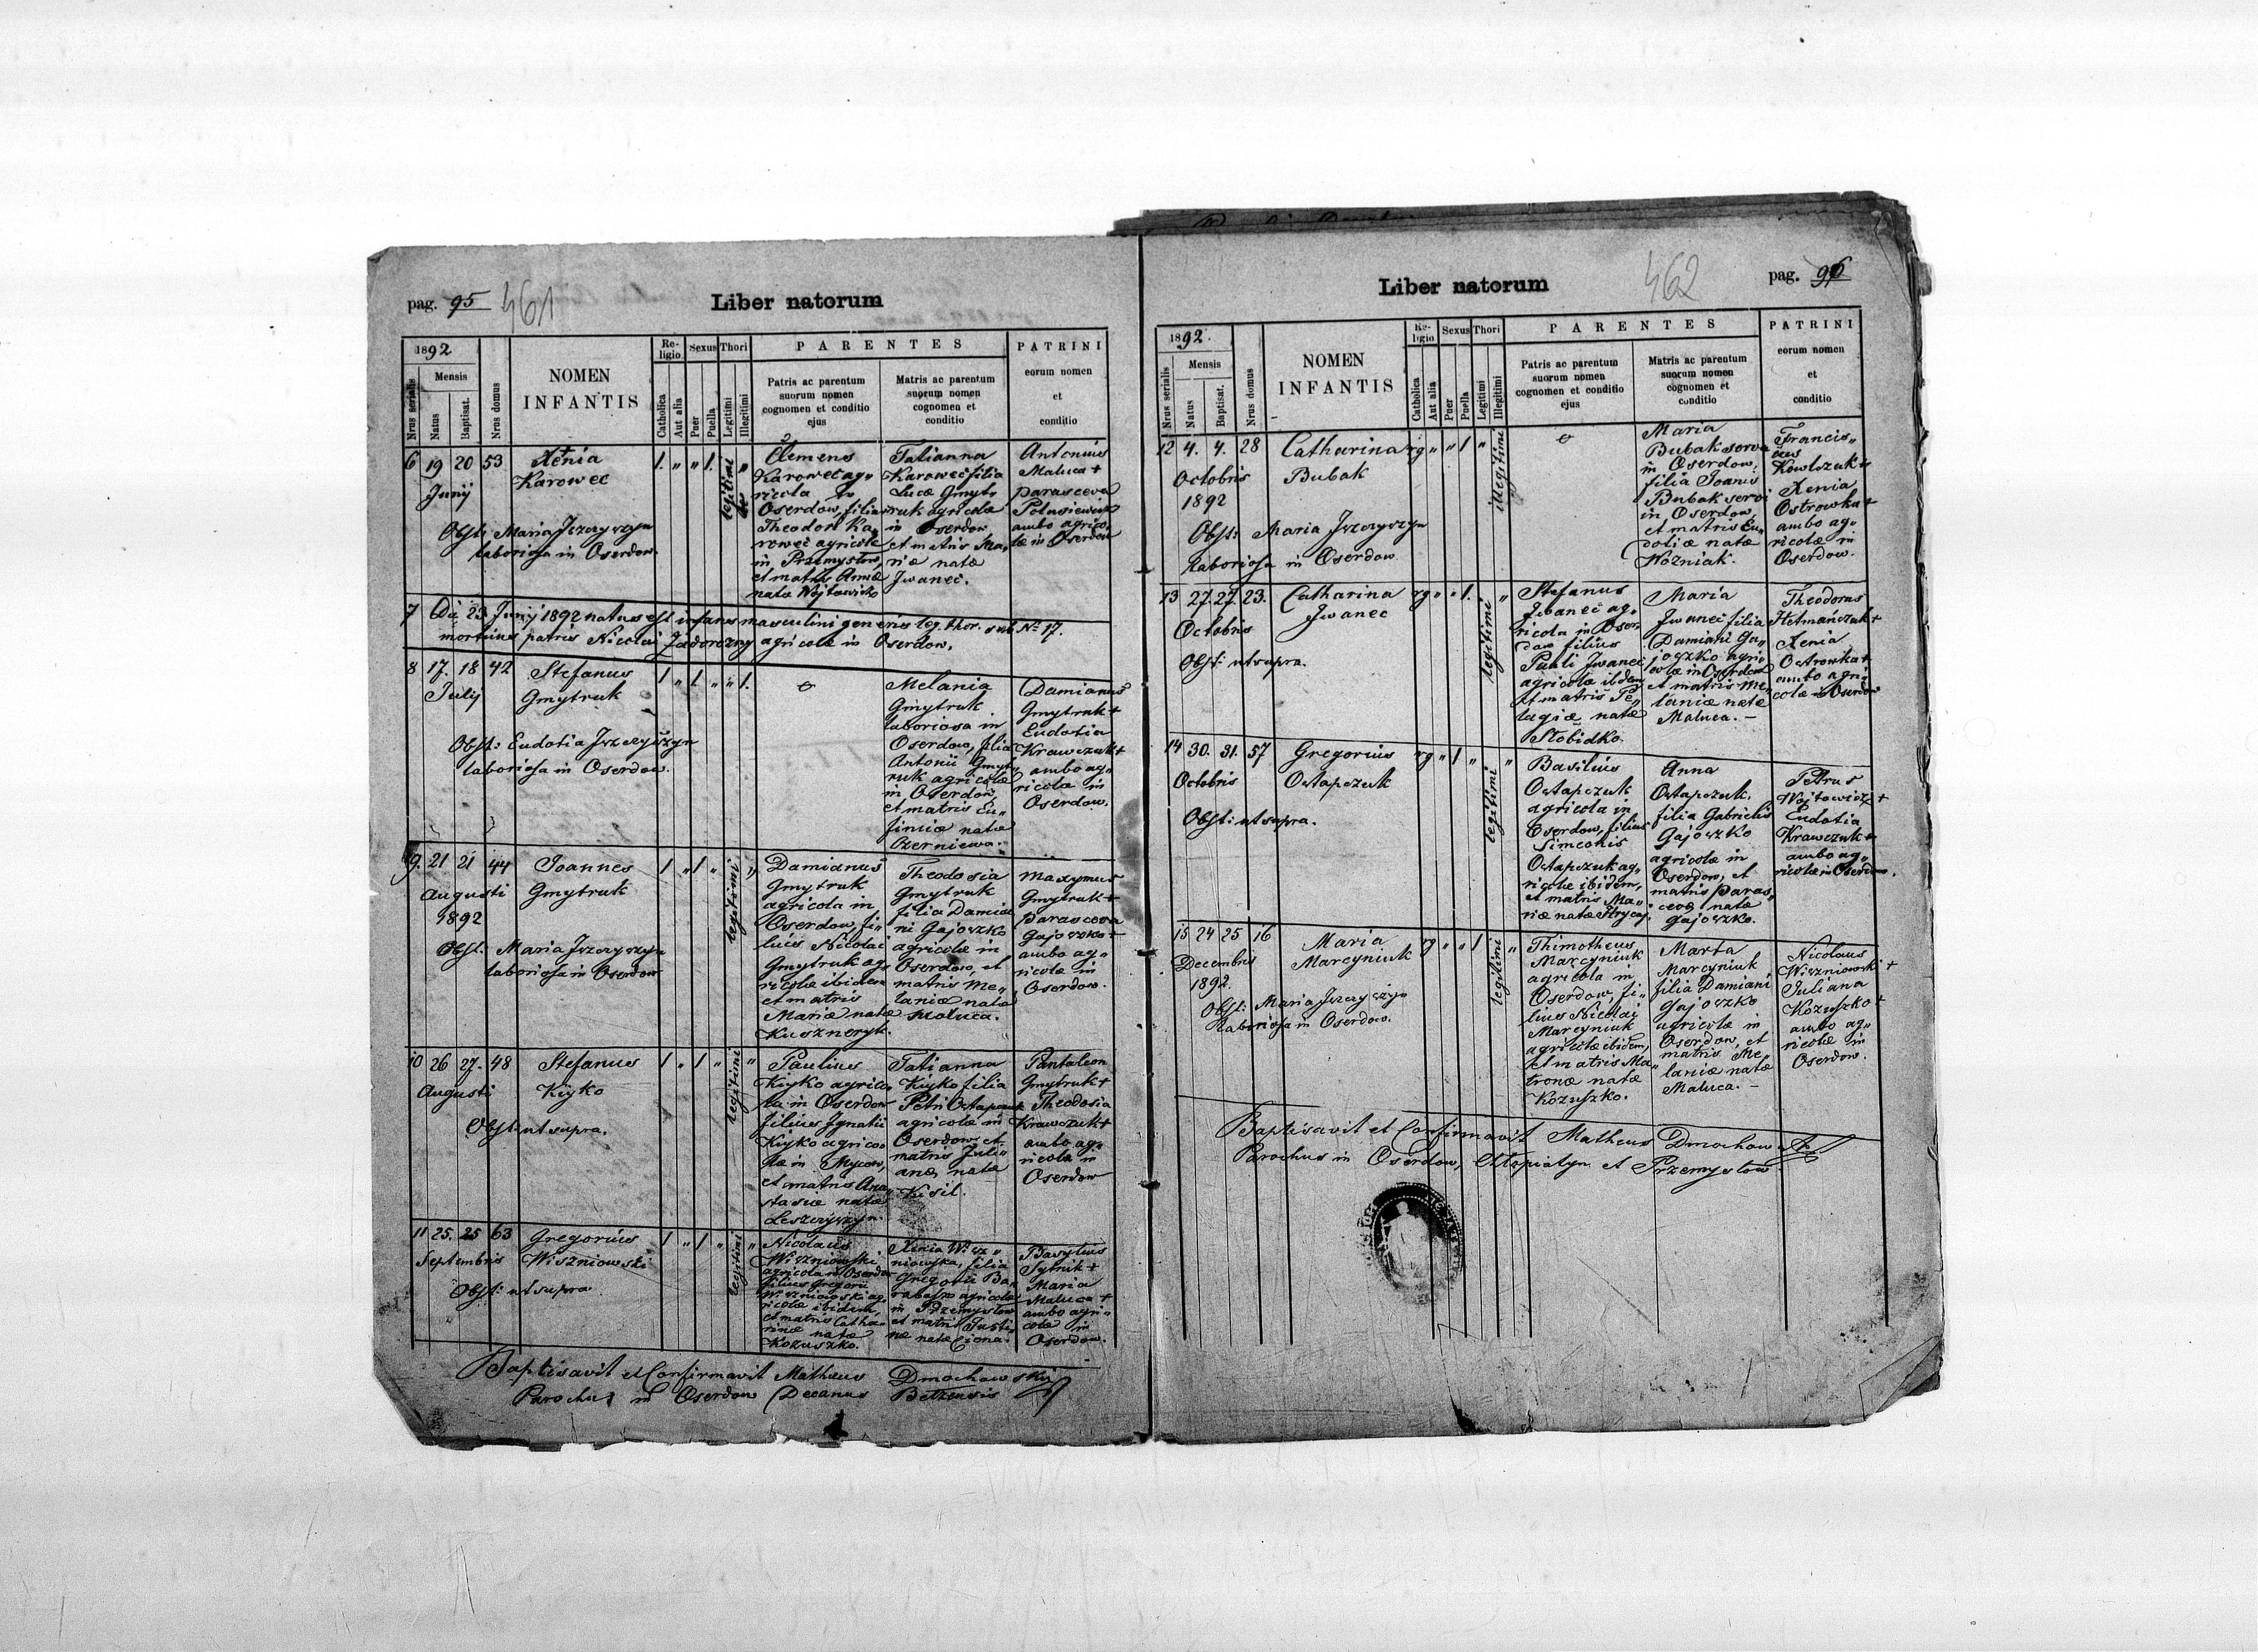 pag. 95
461
Liber natorum
1892
Mensis
Nrus serialis
Natus
Baptisat.
Nrus domus
NOMEN
INFANTIS
Re-
ligio
Catholica
Aut alia
Sexus
Puer
Puella
Thori
Legitimi
Illegitimi
PARENTES
Patris ac parentum
suorum nomen
cognomen et conditio
ejus
Matris ac parentum
suorum nomen
cognomen et
conditio
PATRINI
eorum nomen
et
conditio
6 19 20 53
Junij
Xenia
Karowec
1. " " 1. legitimi "
Obst: Maria Jszczyszyn
laboriosa in Oserdow.
Clemens
Karowec ag„
ricola in
Oserdow, filius
Theodori Ka„
rowec agricolæ
in Przemysłow,
et matris Annæ
natæ Wojtowicz
Tatianna
Karowec filia
Lucæ Gmyt„
ruk agricolæ
in Oserdow
et matris Ma„
riæ natæ
Jwanec.
Antonius
Maluca +
Parasceva
ambo agrico„
læ in Oserdow
7 Die 23 Junij 1892 natus est infans masculini generis leg. thor. sub No 17.
mortuus patris Nicolai Zadorozny agricolæ in Oserdow.
8 17. 18 42
Julij
Stefanus
Gmytruk
1 " 1. " " 1.
Obst: Eudotia Jszczyszyn
laboriosa in Oserdow.
Melania
Gmytruk
laboriosa in
Oserdow, filia
Antonii Gmyt„
ruk agricolæ
in Oserdow,
et matris Eu„
fimiæ natæ
Czerniewa.
Damianus
Gmytruk +
Eudotia
Krawczuk +
ambo ag„
ricolæ in
Oserdow.
9. 21 21 44
Augusti
1892
Joannes
Gmytruk
1 " 1 " legitimi "
Obst. Maria Jszczyszyn
laboriosa in Oserdow
Damianus
Gmytruk
agricola in
Oserdow, fi„
lius Nicolai
Gmytruk ag„
ricolæ ibidem
et matris
Mariæ natæ
Kuszneryk.
Theodosia
Gmytruk
filia Damia„
ni Gajoszko
agricolæ in
Oserdow, et
matris Me„
laniæ natæ
Maluca.
Maxymus
Gmytruk +
Parasceva
Gajoszko +
ambo ag„
ricolæ in
Oserdow.
10 26 27. 48
Augusti
Stefanus
Kijko
1 " 1 " legitimi "
Obst: ut supra.
Paulius
Kijko agrico„
la in Oserdow
filius Jgnatii
Kijko agrico„
læ in Mycow,
et matris Ana„
stasiæ natæ
Leszczyszyn.
Tatianna
Kijko filia
Petri Ostapczuk
agricolæ in
Oserdow et
matris Juli„
anæ natæ
Kisil.
Pantaleon
Gmytruk +
Theodosia
Krawczuk +
ambo ag„
ricolæ in
Oserdow
11 25. 25 63
Septembris
Gregorius
Wiszniowski
1 " 1 " legitimi "
Obst: ut supra
Nicolaus
Wiszniowski
agricola in Oserdow
filius Gregorii
Wiszniowski ag„
ricolæ ibidem,
et matris Catha„
rinæ natæ
Kozuszko.
Xenia Wisz„
niowska, filia
Gregorii Ba„
rabasz agricolæ
in Przemysłow
et matris Justi„
næ natæ Ciona.
Basylius
Sytnik +
Maria
Maluca +
ambo agri„
colæ in
Oserdow.
Baptisavit et Confirmavit Matheus Dmochowski
Parochus in Oserdow Decanus Betzensis
Liber natorum
462
pag. 96
1892.
Mensis
Nrus serialis
Natus
Baptisat.
Nrus domus
NOMEN
INFANTIS
Re-
ligio
Catholica
Aut alia
Sexus
Puer
Puella
Thori
Legitimi
Illegitimi
PARENTES
Patris ac parentum
suorum nomen
cognomen et conditio
ejus
Matris ac parentum
suorum nomen
cognomen et
conditio
PATRINI
eorum nomen
et
conditio
12 4. 4. 28
Octobris
1892
Catharina
Bubak
rg " " 1 " illegitimi
Obst: Maria Jszczyszyn
laboriosa in Oserdow
Maria
Bubak serva
in Oserdow,
filia Joanis
Bubak servi
in Oserdow,
et matris Eu„
dotiæ natæ
Wozniak.
Francis„
cus
Xenia
Ostrowka +
ambo ag„
ricolæ in
Oserdow.
13 27. 27. 23.
Octobris
Catharina
Jwanec
rg " " 1. legitimi "
Obst: ut supra.
Stefanus
Jwanec ag„
ricola in Oser„
dow filius
Pauli Jwanec
agricolæ ibidem
et matris Pe„
lagiæ natæ
Slobidko.
Maria
Jwanec filia
Damiani Ga„
joszko agri„
colæ in Oserdow
et matris Me„
laniæ natæ
Maluca. –
Theodorus
Hetmańczuk +
Xenia
Ostrowka +
ambo agri„
colæ in Oserdow
14 30. 31. 57
Octobris
Gregorius
Ostapczuk
rg " 1 " legitimi "
Obst: ut supra.
Basilius
Ostapczuk
agricola in
Oserdow, filius
Simeonis
Ostapczuk ag„
ricolæ ibidem,
et matris Ma„
riæ natæ Hrycaj
Anna
Ostapczuk.
filia Gabrielis
Gajoszko
agricolæ in
Oserdow, et
matris Paras„
cevæ natæ
Gajoszko.
Petrus
Wojtowicz +
Eudotia
Krawczuk +
ambo ag„
ricolæ in Oserdow.
15 24 25 16
Decembris
1892.
Maria
Marcyniuk
rg " " 1 legitimi "
Obst: Maria Jszczyszyn
laboriosa in Oserdow.
Thimotheus
Marcyniuk
agricola in
Oserdow, fi„
lius Nicolai
Marcyniuk
agricolæ ibidem,
et matris Ma„
tronæ natæ
Kozuszko.
Marta
Marcyniuk
filia Damiani
Gajoszko
agricolæ in
Oserdow, et
matris Me„
laniæ natæ
Maluca. –
Nicolaus
Wiszniowski +
Juliana
Kozuszko +
ambo ag„
ricolæ in
Oserdow.
Baptisavit et Confirmavit Matheus Dmochowski
Parochus in Oserdow, et Przemysłow